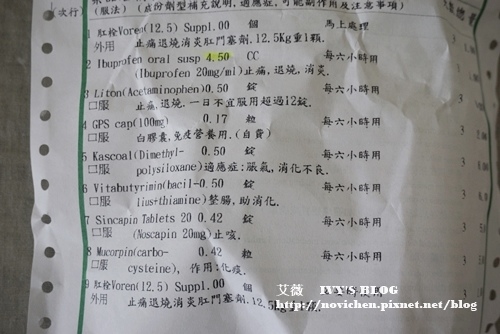 次行) (服法) (成份劑型補充說明,適應症,可能副作用及注意事項)
1 肛栓Voren(12.5) Suppl.00 個 馬上處理
外用 止痛退燒消炎肛門塞劑.12.5Kg重1顆.
2 Ibuprofen oral susp 4.50 CC 每六小時用
(Ibuprofen 20mg/ml)止痛,退燒,消炎.
3 Liton(Acetaminophen)0.50 錠 每六小時用 3
口服 止痛.退燒.一日不宜服用超過12錠.
4 GPS cap(100mg) 0.17 粒 每六小時用 3
口服 白膠囊,免疫營養用.(自費)
5 Kascoal(Dimethyl- 0.50 錠 每六小時用 3
口服 polysiloxane)適應症:脹氣,消化不良.
6 Vitabutyrimin(bacil-0.50 錠 每六小時用 3
口服 lius+thiamine)整腸,助消化.
7 Sincapin Tablets 20 0.42 錠 每六小時用 3
口服 (Noscapin 20mg)止咳.
8 Mucorpin(carbo- 0.42 粒 每六小時用 3
口服 cysteine), 作用:化痰.
9 肛栓Voren(12.5) Suppl.00
外用 止痛退燒消炎肛門塞劑.12.5
艾薇 IVY'S BLOG
http://novichen.pixnet.net/blog